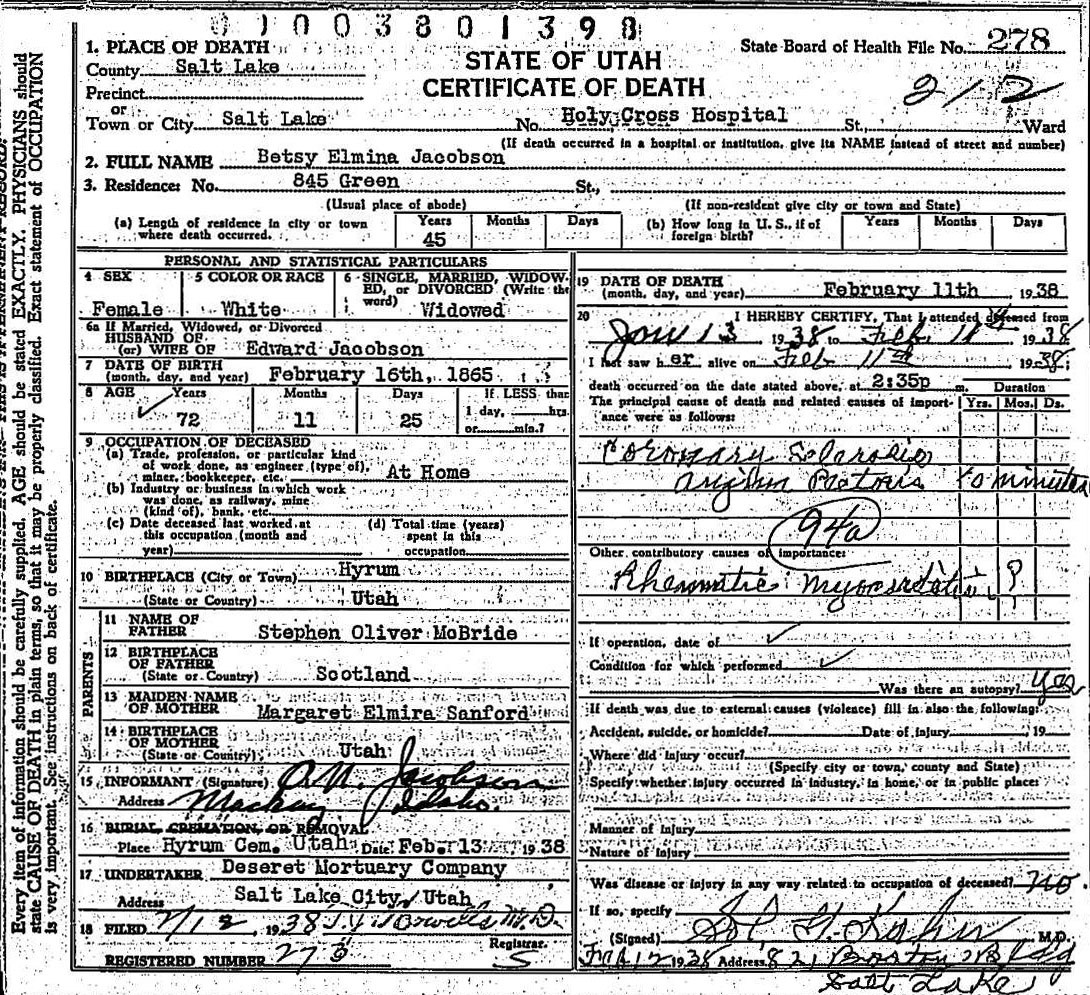 01003801398
1. PLACE OF DEATH
County Salt Lake
Precinct
or
Town or City Salt Lake
STATE OF UTAH
CERTIFICATE OF DEATH
State Board of Health File No. 278
212
No. Holy Cross Hospital St., Ward
(If death occurred in a hospital or institution, give its NAME instead of street and number)
2. FULL NAME Betsy Elmina Jacobson
3. Residence: No. 845 Green St.,
(Usual place of abode) (If non-resident give city or town and State)
(a) Length of residence in city or town where death occurred. Years 45 Months Days
(b) How long in U. S., if of foreign birth? Years Months Days
PERSONAL AND STATISTICAL PARTICULARS
4 SEX Female
5 COLOR OR RACE White
6 SINGLE, MARRIED, WIDOWED, or DIVORCED (Write the word) Widowed
6a If Married, Widowed, or Divorced
HUSBAND OF
(or) WIFE OF Edward Jacobson
7 DATE OF BIRTH
(month, day, and year) February 16th, 1865
8 AGE Years 72 Months 11 Days 25 If LESS than 1 day, hrs. or min.?
9 OCCUPATION OF DECEASED
(a) Trade, profession, or particular kind
of work done, as engineer (type of),
miner, bookkeeper, etc. At Home
(b) Industry or business in which work
was done, as railway, mine
(kind of), bank, etc.
(c) Date deceased last worked at
this occupation (month and
year)
(d) Total time (years)
spent in this
occupation
10 BIRTHPLACE (City or Town) Hyrum
(State or Country) Utah
PARENTS
11 NAME OF
FATHER Stephen Oliver McBride
12 BIRTHPLACE
OF FATHER
(State or Country) Scotland
13 MAIDEN NAME
OF MOTHER Margaret Elmira Sanford
14 BIRTHPLACE
OF MOTHER
(State or Country) Utah
15 INFORMANT (Signature) Jacobson
Address Mackay Idaho.
16 BURIAL, CREMATION, OR REMOVAL
Place Hyrum Cem. Utah Date Feb. 13 1938
17 UNDERTAKER Deseret Mortuary Company
Address Salt Lake City, Utah
18 FILED 2/12, 1938 M.D.
Registrar.
REGISTERED NUMBER 278
S
19 DATE OF DEATH
(month, day, and year) February 11th, 1938
20 I HEREBY CERTIFY, That I attended deceased from
Jan 13 1938 to Feb. 11th 1938
I last saw her alive on Feb 11th 1938,
death occurred on the date stated above, at 2:35p m.
Duration
The principal cause of death and related causes of importance were as follows: Yrs. Mos. Ds.
Coronary Sclerosis
Angina Pectoris minutes
94a
Other contributory causes of importance:
Rheumatic Myocarditis ?
If operation, date of ✓
Condition for which performed ✓
Was there an autopsy? yes
If death was due to external causes (violence) fill in also the following:
Accident, suicide, or homicide? Date of injury , 19
Where did injury occur?
(Specify city or town, county and State)
Specify whether injury occurred in industry, in home, or in public place:
Manner of Injury
Nature of Injury
Was disease or injury in any way related to occupation of deceased? no.
If so, specify
(Signed) M.D.
Feb 12 1938 Address 821 Boston Bldg
Salt Lake
Every item of information should be carefully supplied. AGE should be stated EXACTLY. PHYSICIANS should
state CAUSE OF DEATH in plain terms, so that it may be properly classified. Exact statement of OCCUPATION
is very important. See instructions on back of certificate.